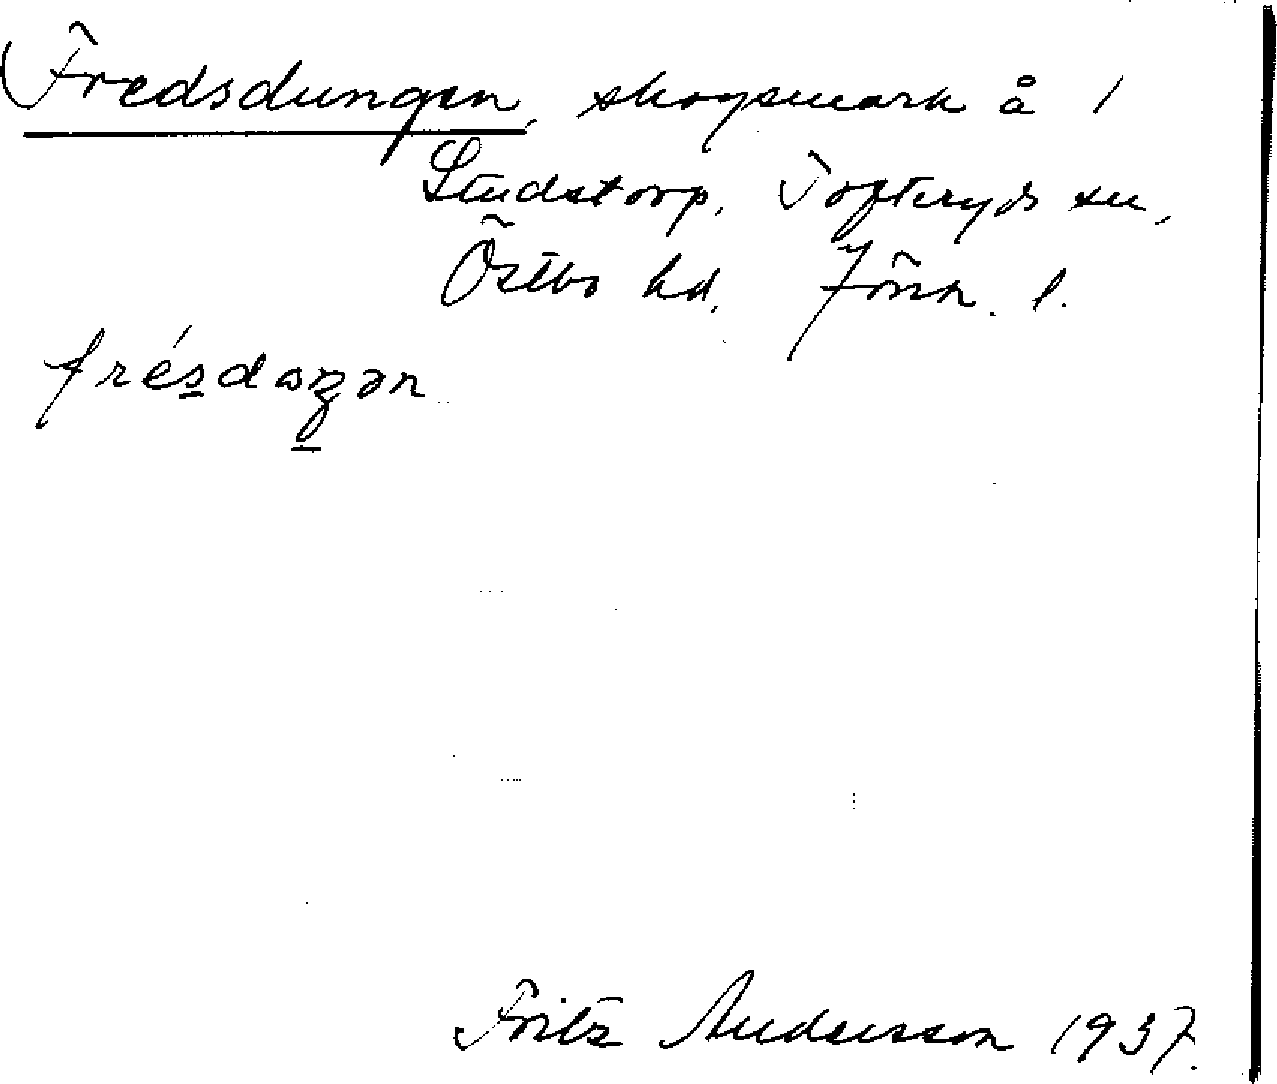 Fredsdungen, skogsmark å 1
Studstorp, Tofteryds sn,
Östbo hd. Jönk. l.
frésdaŋən
Fritz Andersson 1937.